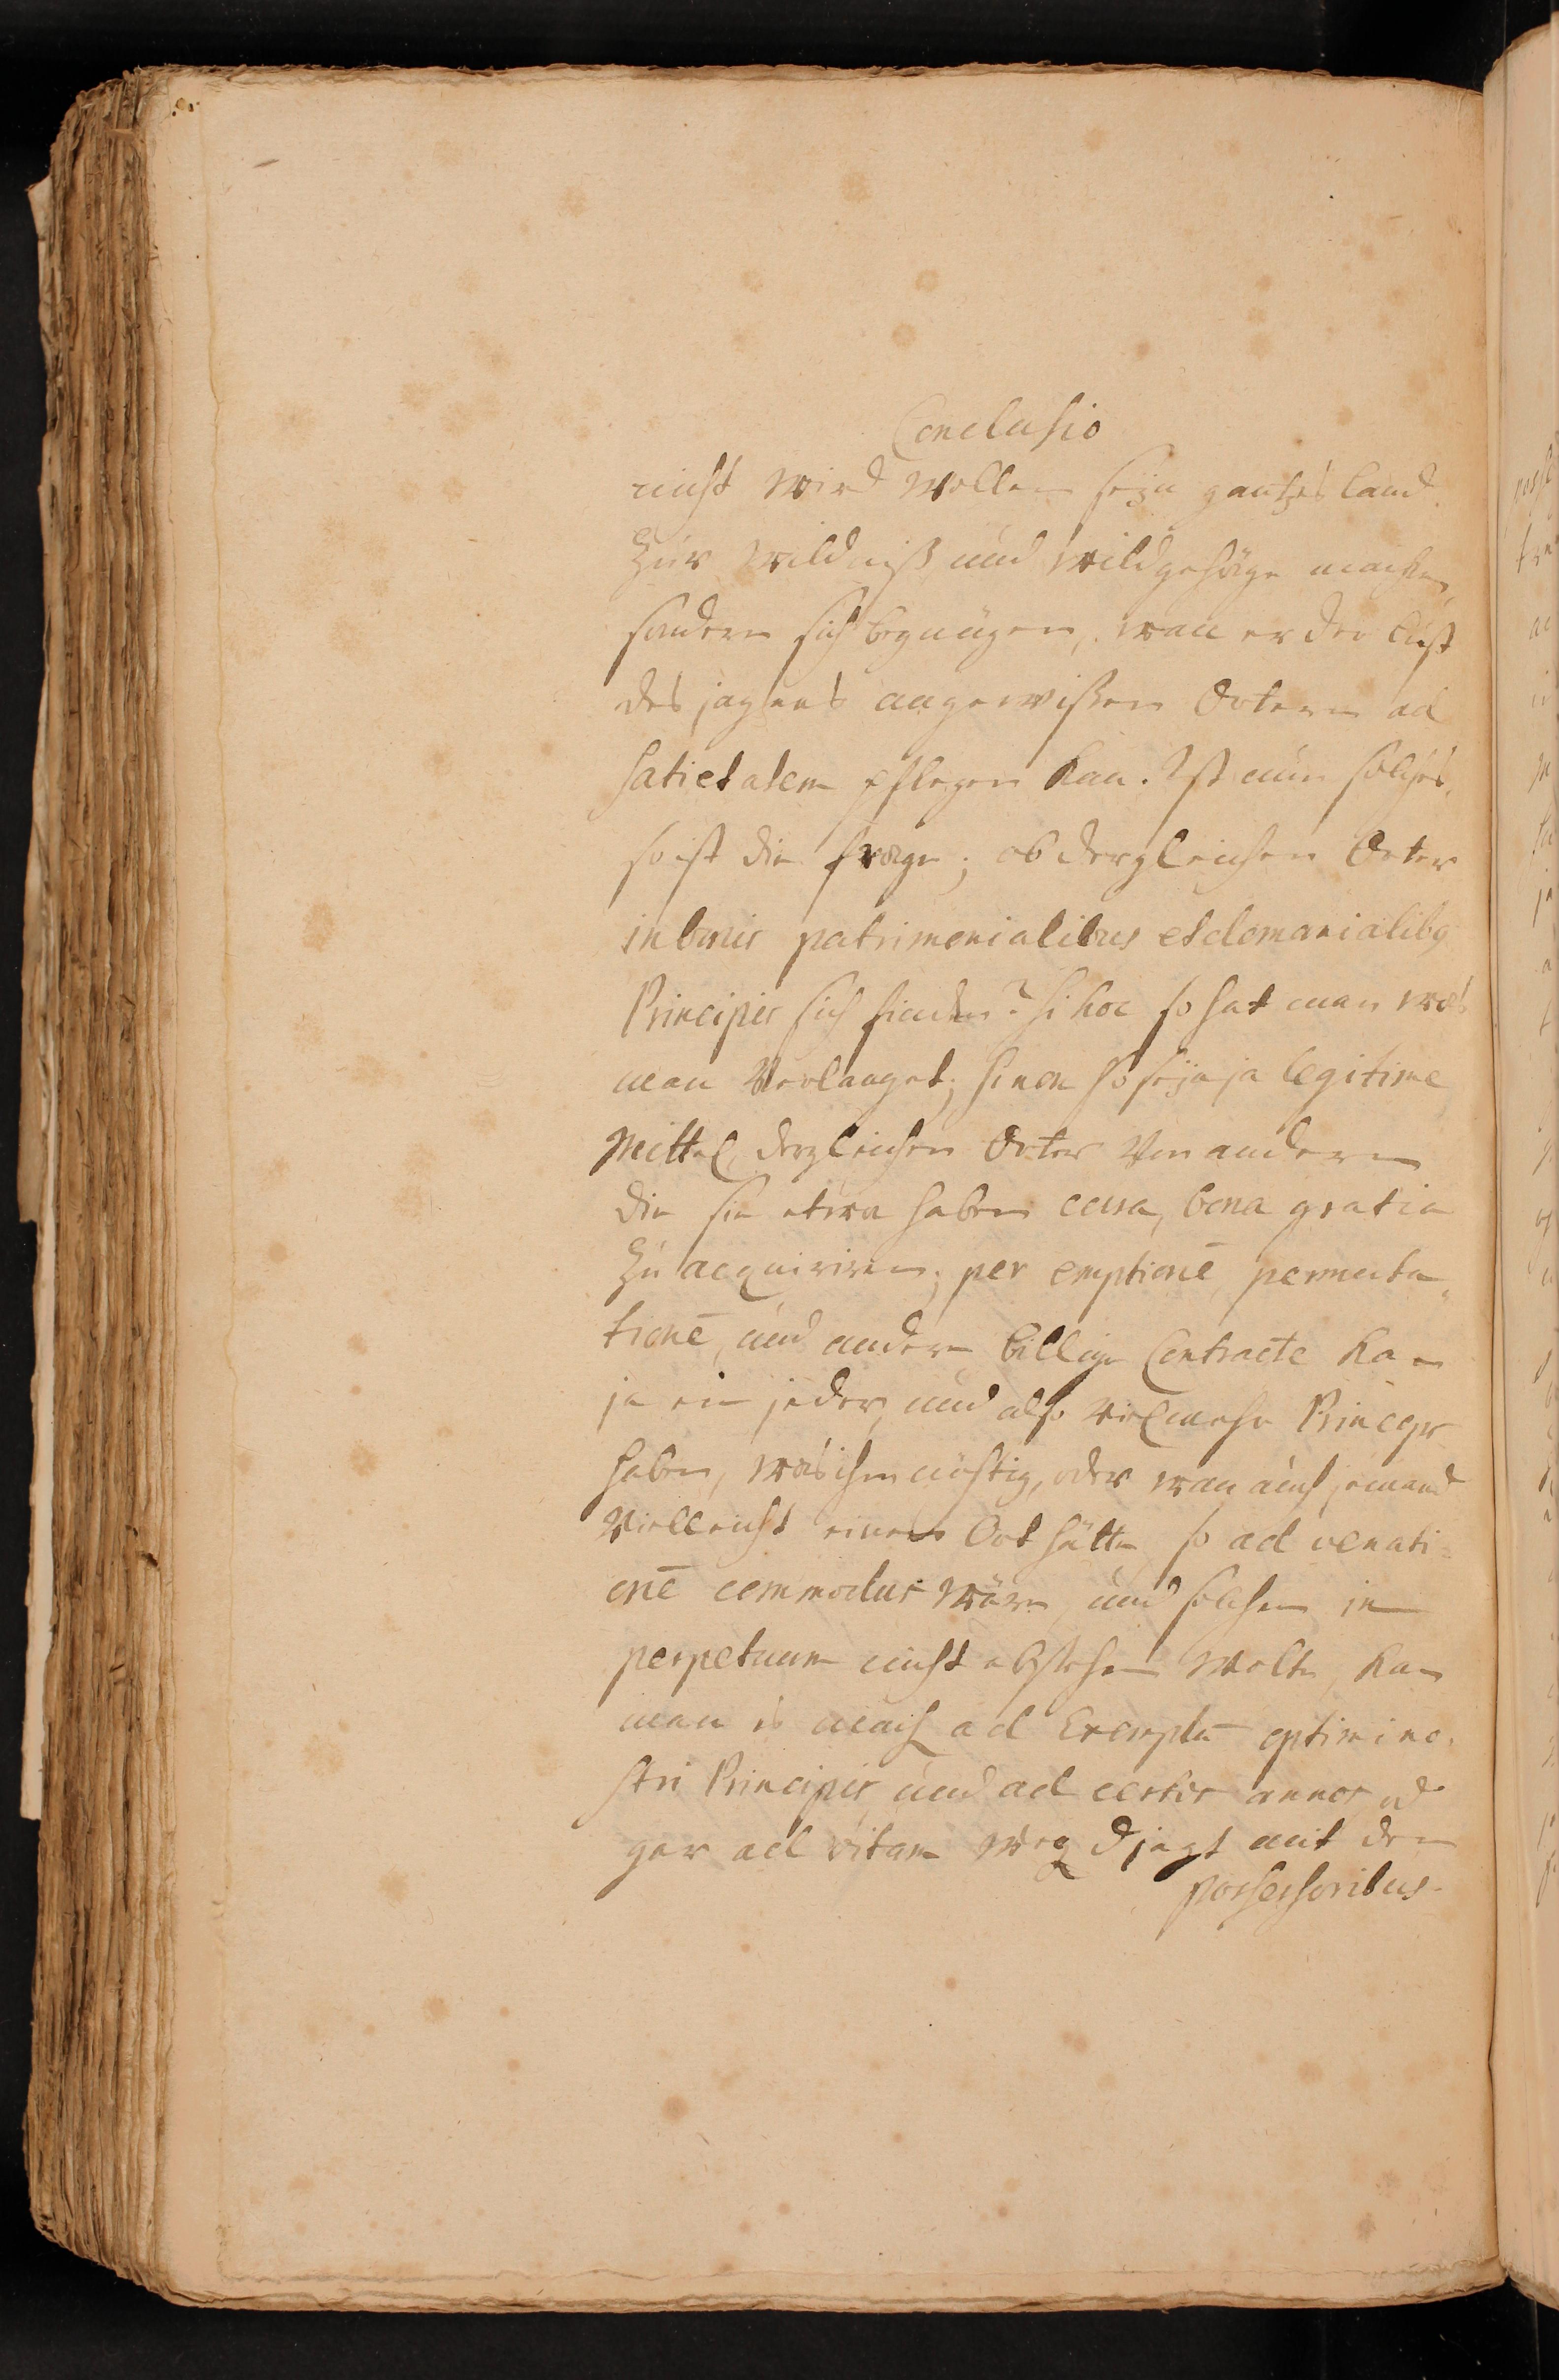 Conclusio
nicht wird wollen sein gantzes Land
zur Wildniß und Wildgehäge machen,
sondern sich begnügen, wan er der Lust
des jagens an gewißen Örtern ad
satietatem pflegen kan. Ist nun solches,
so ist die frage; ob dergleichen Örter
in bonis patrimonialibus et domanialibq
Principis sich finden? si hoc so hat man was
man verlanget; si non so seyn ja legitime
Mittel, dergleichen Örter von andern
die sie etwa haben cum bona gratia
zu acquiriren; per emptionē, permuta-
tionē, und andere billige Contracte kan
ja ein jeder, und also vielmehr Princeps
haben, was ihm nöhtig, oder wan auch jemand
vielleicht einen Ort hätte, so ad venati-
onē commodus wäre, und solchen in
perpetuum nicht abstehen wolte, kan
man es mach ad Exemplū optimi no-
stri Principis, und ad certos annos, od
gar ad vitam weg d jagt mit den
possessoribus.